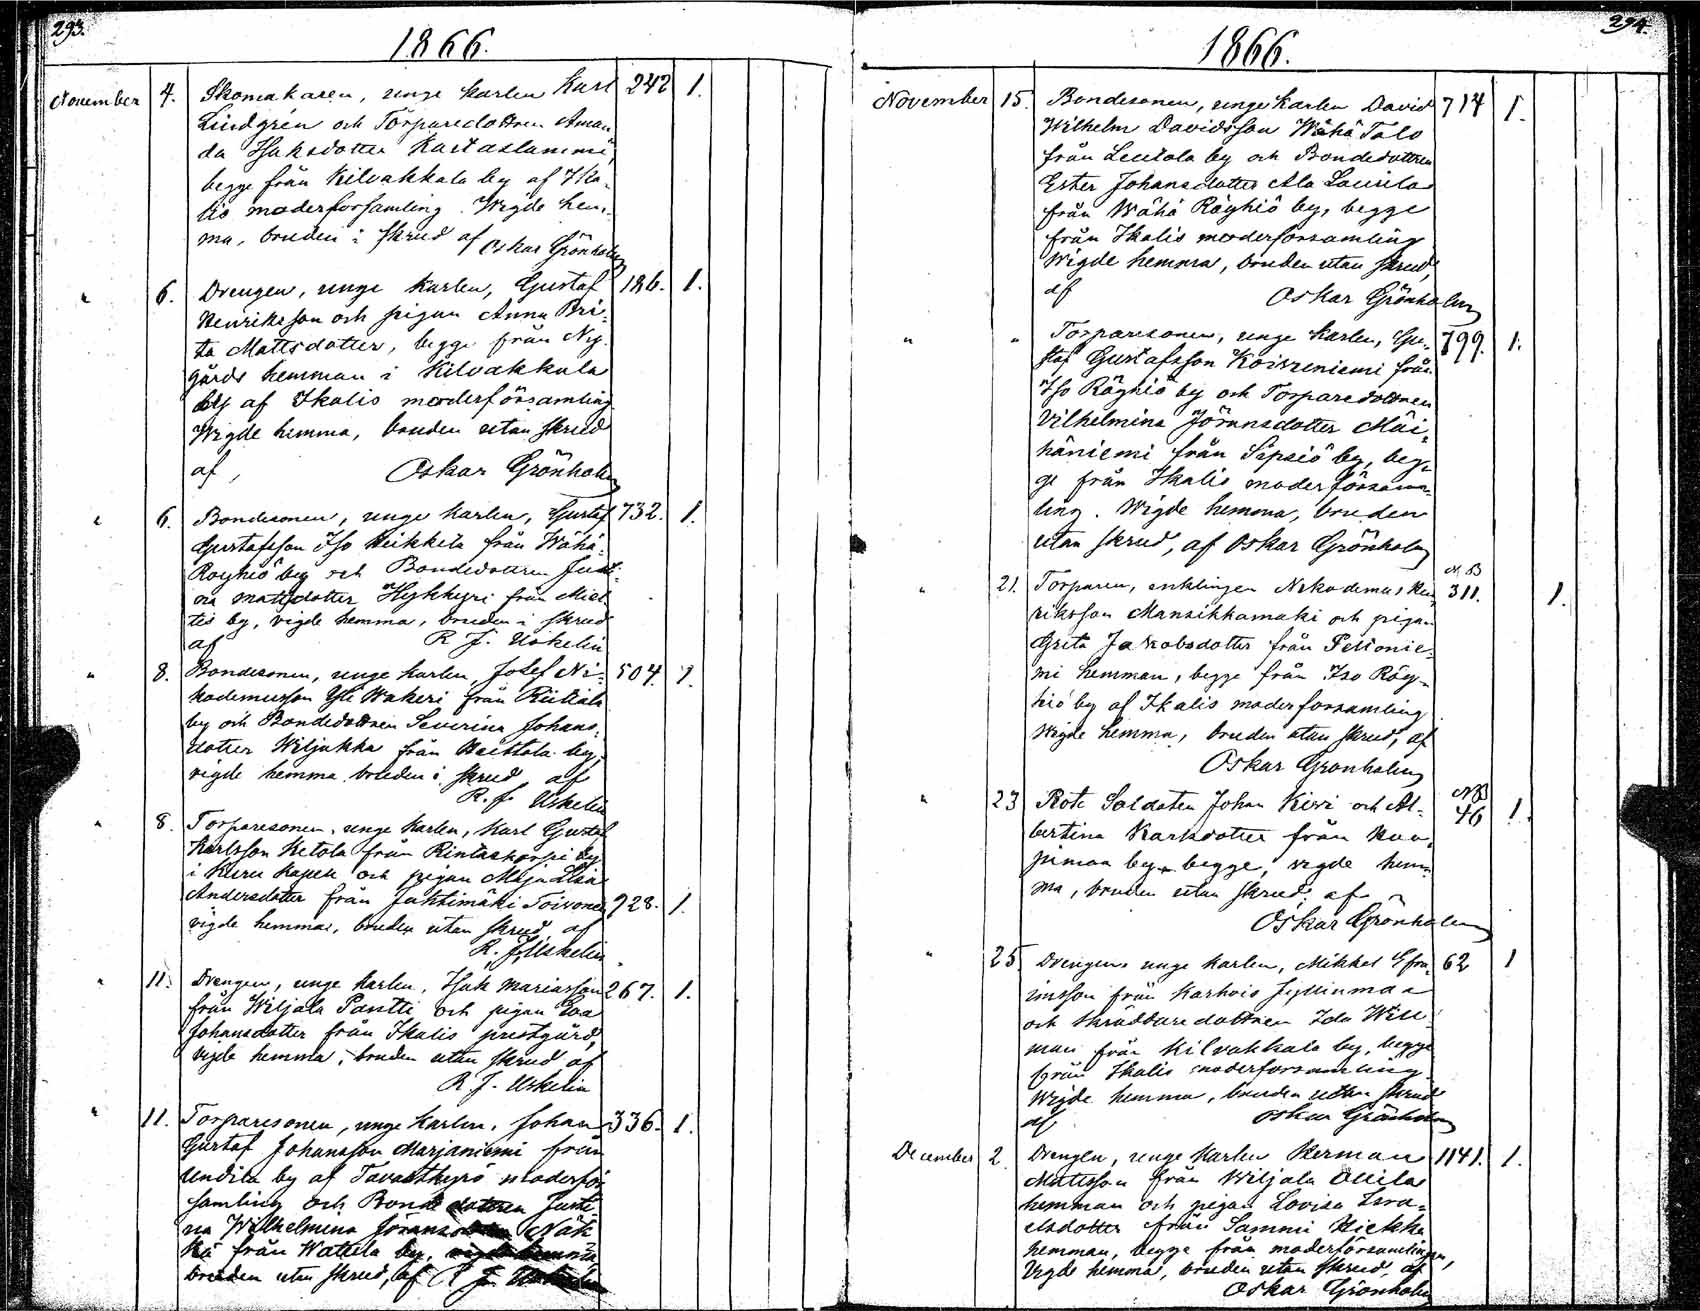 293.
1866.
November 4. Skomakaren, unge karlen Karl 242 1.
Lindgrén och Torparedottren Aman-
da Isaksdotter Kartaslammi,
begge från Kilvakkala by af Ika-
lis moderförsamling. Wigde hem-
ma, bruden i skrud af Oskar Grönholm
" 6. Drengen, unge karlen, Gustaf 186. 1.
Henriksson och pigan Anna Bri-
ta Mattsdotter, begge från Ny-
gårds hemman i Kilvakkala
by af Ikalis moderförsamling
Wigde hemma, bruden utan skrud
af, Oskar Grönholm
" 6. Bondesonen, unge karlen, Gustaf 732. 1.
Gustafsson Iso Heikkilä från Wähä-
Röyhiö by och Bondedottren Justi-
na Mattsdotter Hykkyri från Miet-
tis by, vigde hemma, bruden i skrud
af R. J. Uskelin
" 8. Bondesonen, unge karlen, Josef Ni- 504. 1.
kodemusson Yli Wakeri från Riitiala
by och Bondedottren Severina Johans-
dotter Wiljakka från Heittola by,
vigde hemma bruden i skrud af
R. J. Uskelin
" 8. Torparesonen, unge karlen, Karl Gustaf
Karlsson Ketola från Rintaskorpi by
i Kuru kapell och pigan Maja Lisa
Andersdotter från Juhtimäki Toivonen 928. 1.
vigde hemma, bruden utan skrud, af
R. J. Uskelin
" 11. Drengen, unge karlen, Isak Mariasson 267. 1.
från Wiljala Pantti och pigan Eva
Johansdotter från Ikalis prestgård,
vigde hemma, bruden utan skrud af
R J. Uskelin
" 11. Torparesonen, unge karlen, Johan 336. 1.
Gustaf Johansson Marjaniemi från
Undila by af Tavastkyrö moderför
samling och Bondedottren Justi
na Wilhelmina Jöransdotter
från Wattula by, vigde hemma
bruden utan skrud, af R J. Uskelin
294.
1866.
November 15. Bondesonen, unge karlen David 714 1.
Wilhelm Davidsson Wähä Talo
från Leutola by och Bondedottren
Ester Johansdotter Ala Laurila
från Wähä Röyhiö by, begge
från Ikalis moderförsamling
Wigde hemma, bruden utan skrud,
af Oskar Grönholm
" " Torparesonen, unge karlen, Gu- 799. 1.
staf Gustafsson Koivuniemi från
Iso Röyhiö by och Torparedottren
Vilhelmina Jöransdotter Mäi-
häniemi från Sipsiö by, beg-
ge från Ikalis moderförsam-
ling. Wigde hemma, bruden
utan skrud, af Oskar Grönholm
" 21. Torparen, enklingen Nikodemus Hen- M.B 311. 1.
riksson Mansikkamäki och pigan
Greta Jakobsdotter från Petronie-
mi hemman, begge från Iso Röy-
hiö by af Ikalis moderförsamling
Wigde hemma, bruden utan skrud, af
Oskar Grönholm
" 23 Rote Soldaten Johan Kivi och Al- NB 46 1.
bertina Karlsdotter från
by begge, vigde hem-
ma, bruden utan skrud, af
Oskar Grönholm
" 25 Drengen unge karlen, Mikkel Efra- 62 1
imsson från Karhois Jyllinmaa
och skräddaredottren Ida Will-
man från Kilvakkala by, begge
från Ikalis moderförsamling
Wigde hemma, bruden utan skrud
af Oskar Grönholm
December 2 Drengen, unge karlen Herman 1141. 1.
Mattsson från Wiljala Ollila
hemman och pigan Lovisa Isra-
elsdotter från Sammi Hiekka
hemman, begge från moderförsamlingen,
Vigde hemma, bruden utan skrud, af
Oskar Grönholm